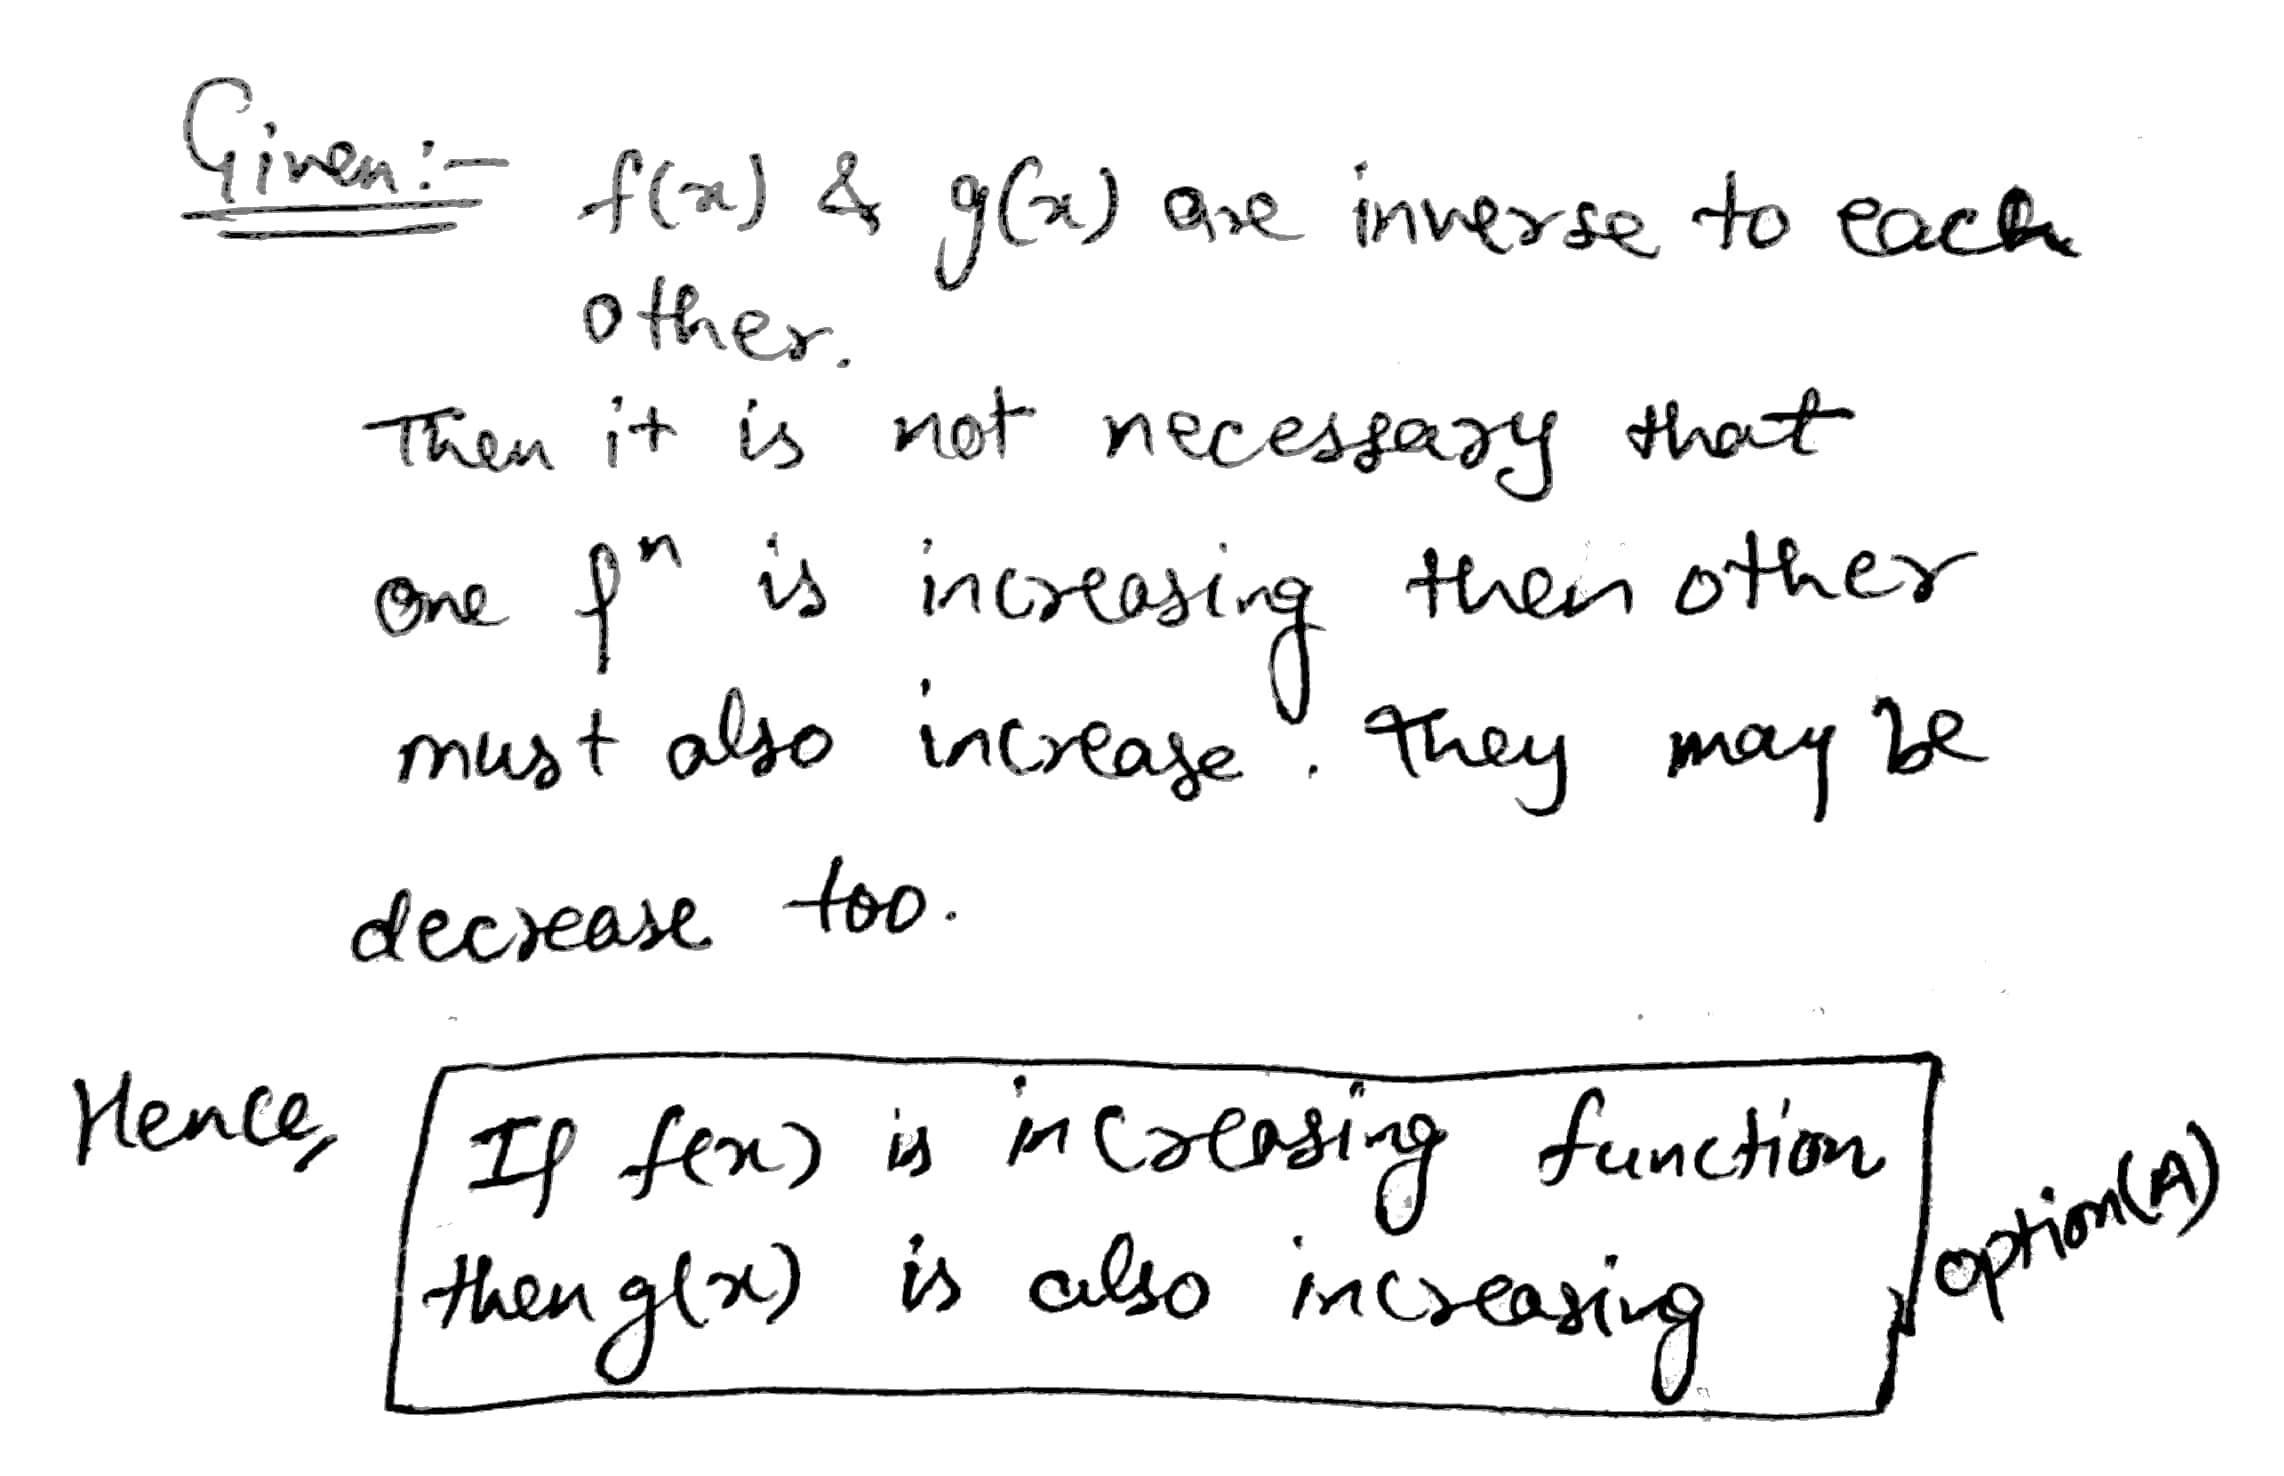 Given:- f(x) & g(x) are inverse to each
other.
Then it is not necessary that
one fⁿ is increasing then other
must also increase. They may be
decrease too.
Hence, If f(x) is increasing function
then g(x) is also increasing
option(A)